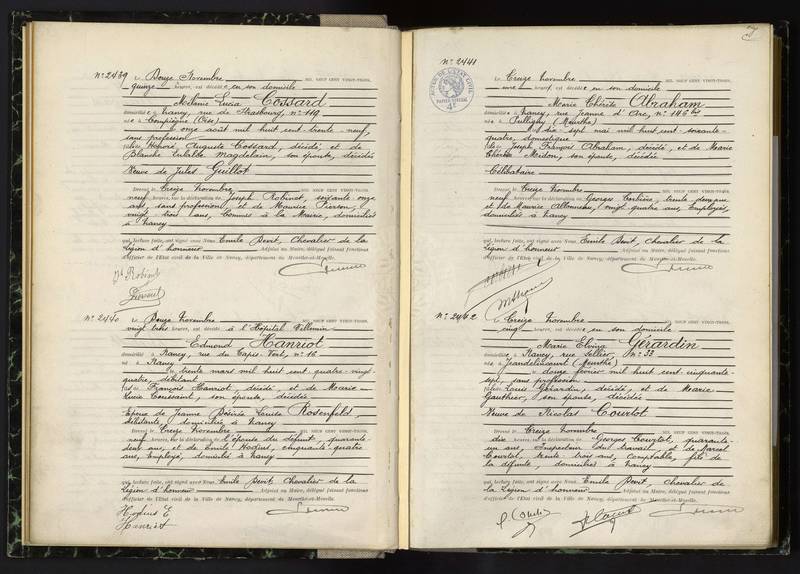 N° 2439 Le Douze Novembre MIL NEUF CENT VINGT-TROIS,
quinze heures, est décédée en son domicile
Mélanie Lucia Cossard
domiciliée à Nancy, rue de Strasbourg, n° 119
née à Compiègne (Oise)
onze août mil huit cent trente neuf,
sans profession
fille Honoré Auguste Cossard, décédé, et de
Blanche Magdelain, son épouse, décédée
Veuve de Jules Guillot
Dressé le Treize Novembre MIL NEUF CENT VINGT-TROIS,
neuf heures, sur la déclaration de Joseph Robinot, soixante onze
ans, sans profession, et de Maurice Pierson,
vingt trois ans, Commis à la Mairie, domiciliés
à Nancy
qui, lecture faite, ont signé avec Nous Emile Devit, Chevalier de la
Légion d'honneur Adjoint au Maire, délégué faisant fonctions
d'officier de l'Etat civil de la Ville de Nancy, département de Meurthe-et-Moselle.
N° 2440 Le Douze Novembre MIL NEUF CENT VINGT-TROIS,
vingt heures, est décédé à l'Hôpital Villemin
Edmond Hanriot
domicilié à Nancy, rue du Tapis Vert, n° 16
né à Nancy
trente mars mil huit cent quatre-vingt
quatre, débitant
fils François Hanriot, décédé, et de Marie
Lucie Toussaint, son épouse, décédée
Epoux de Jeanne Désirée Louise Rosenfeld
débitante, domiciliée à Nancy
Dressé le Treize Novembre MIL NEUF CENT VINGT-TROIS,
neuf heures, sur la déclaration de l'épouse du défunt, quarante
deux ans, et de Emile Hodius, cinquante-quatre
ans, Employé, domiciliés à Nancy
qui, lecture faite, ont signé avec Nous Emile Devit Chevalier de la
Légion d'honneur Adjoint au Maire, délégué faisant fonctions
d'officier de l'Etat civil de la Ville de Nancy, département de Meurthe-et-Moselle.
Hodius E
Hanriot
N° 2441
Le Treize novembre MIL NEUF CENT VINGT-TROIS,
une heure, est décédée en son domicile
Marie Thérèse Abraham
domiciliée à Nancy, rue Jeanne d'Arc, n° 146 bis
née à Pulligny (Meurthe)
dix sept mai mil huit cent soixante
quatre, domestique
fille de Joseph François Abraham, décédé, et de Marie
Thérèse Meidon, son épouse, décédée
Célibataire
Dressé le Treize Novembre MIL NEUF CENT VINGT-TROIS,
neuf heures, sur la déclaration de Georges Corbière, trente cinq ans
et de Maurice vingt quatre ans, Employés,
domiciliés à Nancy
qui, lecture faite, ont signé avec Nous Emile Devit, Chevalier de la
Légion d'honneur Adjoint au Maire, délégué faisant fonctions
d'officier de l'Etat civil de la Ville de Nancy, département de Meurthe-et-Moselle.
N° 2442 Le Treize Novembre MIL NEUF CENT VINGT-TROIS,
cinq heures, est décédée en son domicile
Marie Elvina Gérardin
domiciliée à Nancy, rue Sellier, n° 33
née à Jeandelaincourt (Meurthe)
douze février mil huit cent cinquante-
sept, sans profession
fille Louis Gérardin, décédé, et de Marie
Gauthier, son épouse, décédée
Veuve de Nicolas Courtot
Dressé le Treize Novembre MIL NEUF CENT VINGT-TROIS,
dix heures, sur la déclaration de Georges Courtot, quarante-
un ans, Inspecteur du travail, et de Marcel
Courtot, trente-trois ans, Comptable, fils de
la défunte, domiciliés à Nancy
qui, lecture faite, ont signé avec Nous Emile Devit, Chevalier de
la Légion d'honneur Adjoint au Maire, délégué faisant fonctions
d'officier de l'Etat civil de la Ville de Nancy, département de Meurthe-et-Moselle.